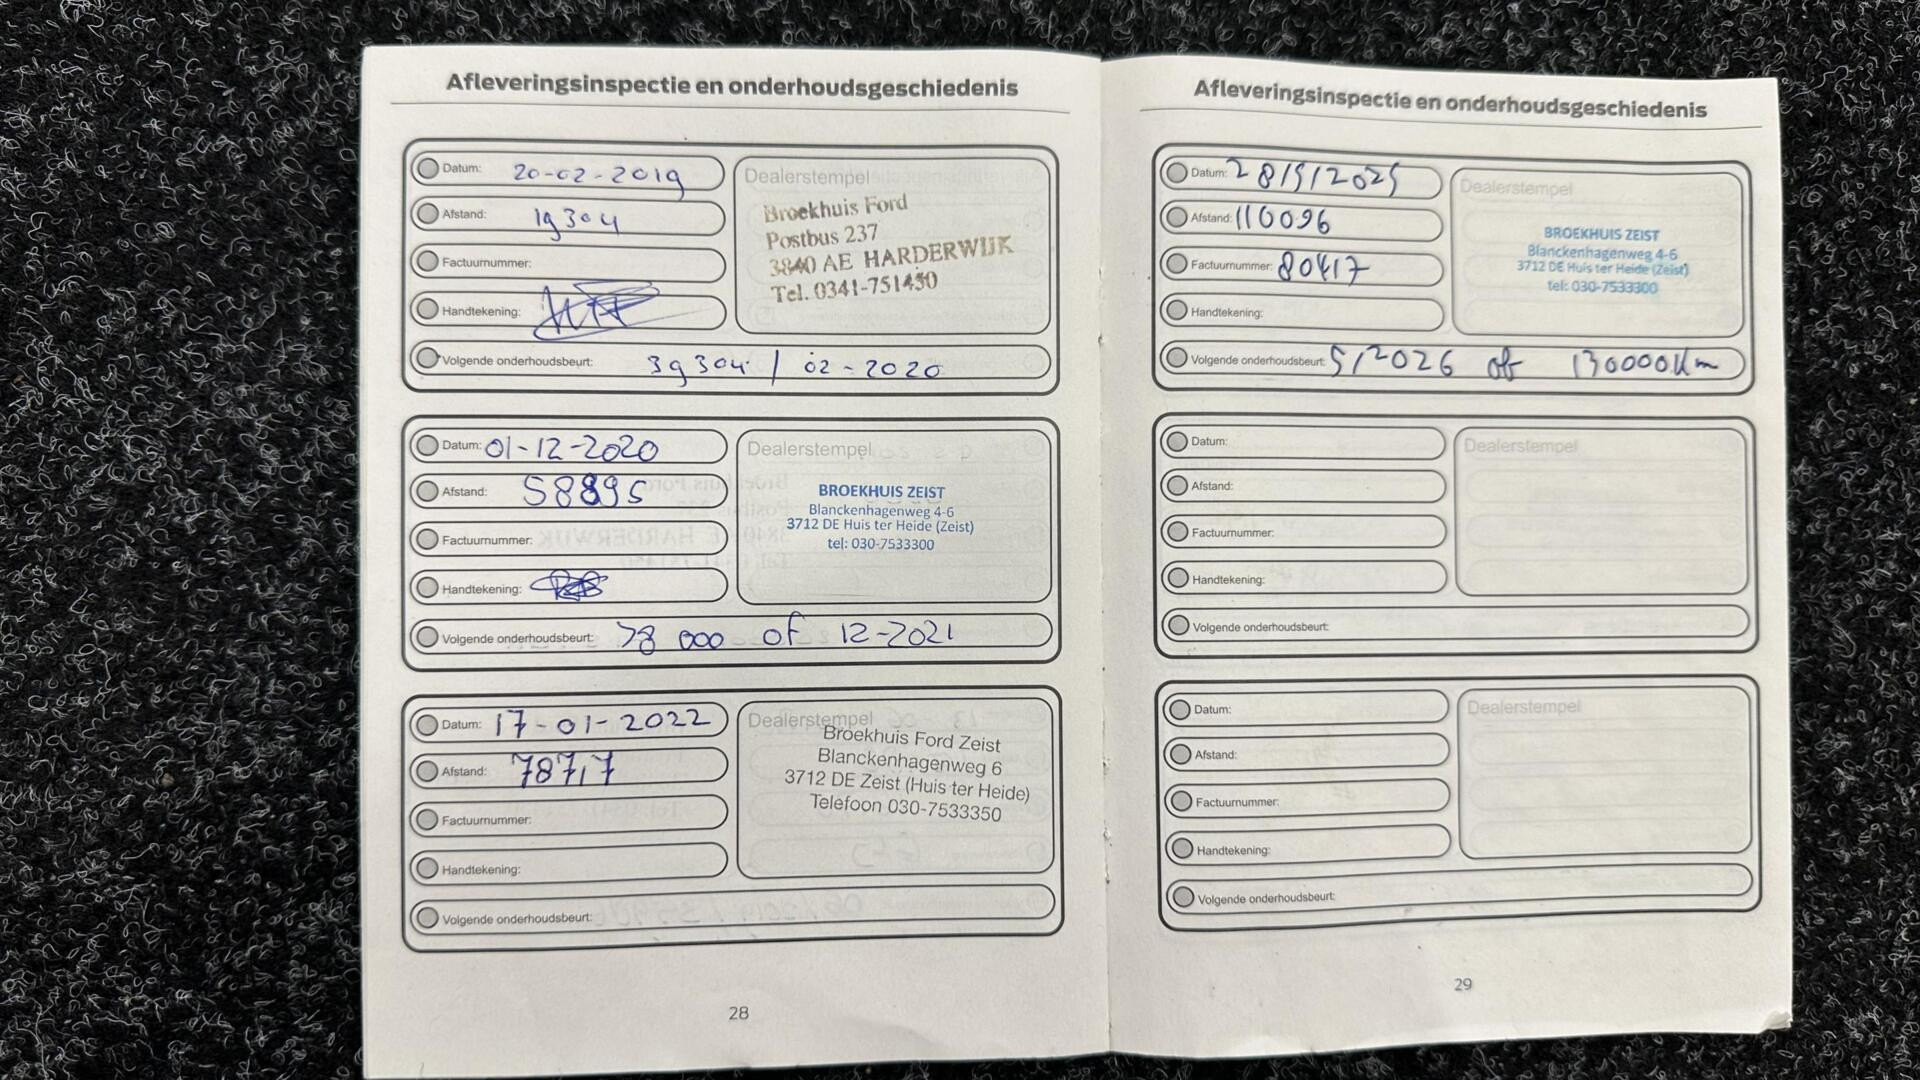 Afleveringsinspectie en onderhoudsgeschiedenis
Datum: 20-02-2019
Afstand: 19304
Factuurnummer:
Handtekening:
Volgende onderhoudsbeurt: 39304 / 02-2020
Dealerstempel
Broekhuis Ford
Postbus 237
3840 AE HARDERWIJK
Tel. 0341-751450
Datum: 01-12-2020
Afstand: 58895
Factuurnummer:
Handtekening:
Volgende onderhoudsbeurt: 78 000 of 12-2021
Dealerstempel
BROEKHUIS ZEIST
Blanckenhagenweg 4-6
3712 DE Huis ter Heide (Zeist)
tel: 030-7533300
Datum: 17-01-2022
Afstand: 78717
Factuurnummer:
Handtekening:
Volgende onderhoudsbeurt:
Dealerstempel
Broekhuis Ford Zeist
Blanckenhagenweg 6
3712 DE Zeist (Huis ter Heide)
Telefoon 030-7533350
28
Afleveringsinspectie en onderhoudsgeschiedenis
Datum: 28/5/2025
Afstand: 110096
Factuurnummer: 80417
Handtekening:
Volgende onderhoudsbeurt: 5/2026 of 130000Km
Dealerstempel
BROEKHUIS ZEIST
Blanckenhagenweg 4-6
3712 DE Huis ter Heide (Zeist)
tel: 030-7533300
Datum:
Afstand:
Factuurnummer:
Handtekening:
Volgende onderhoudsbeurt:
Dealerstempel
Datum:
Afstand:
Factuurnummer:
Handtekening:
Volgende onderhoudsbeurt:
Dealerstempel
29